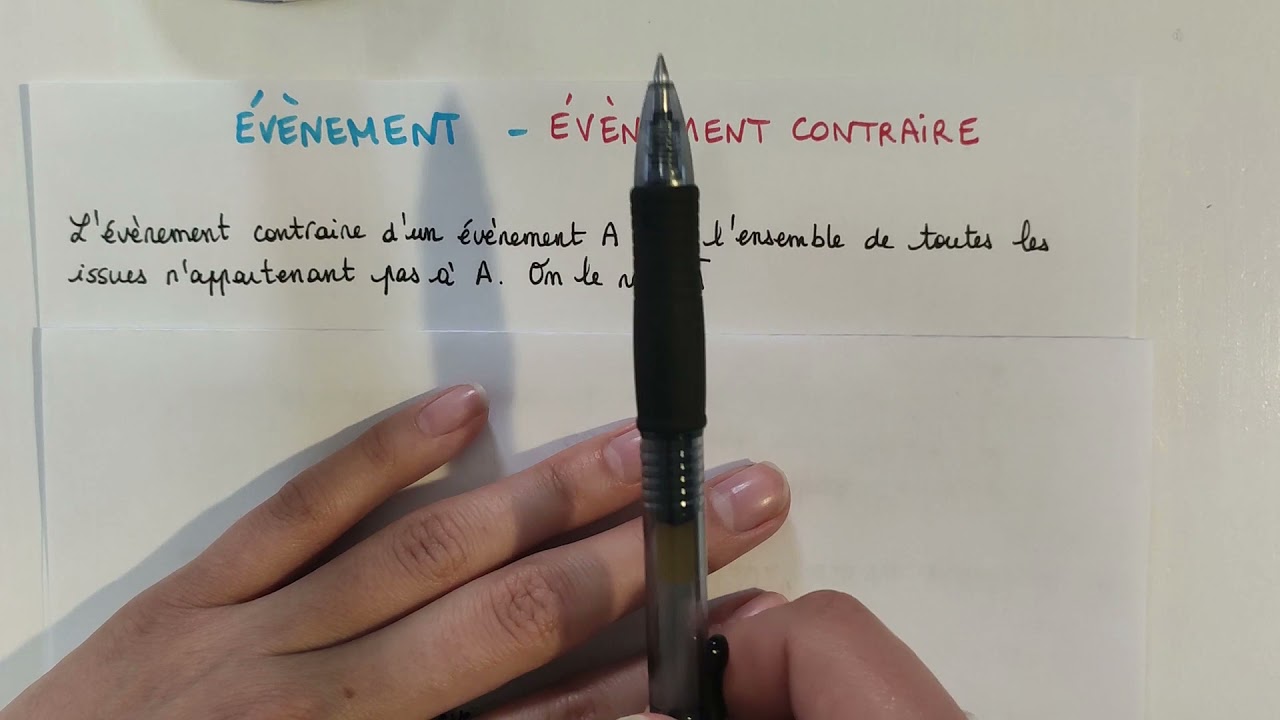 ÉVÈNEMENT - ÉVÈNEMENT CONTRAIRE
L'évènement contraire d'un évènement A l'ensemble de toutes les
issues n'appartenant pas à A. On le